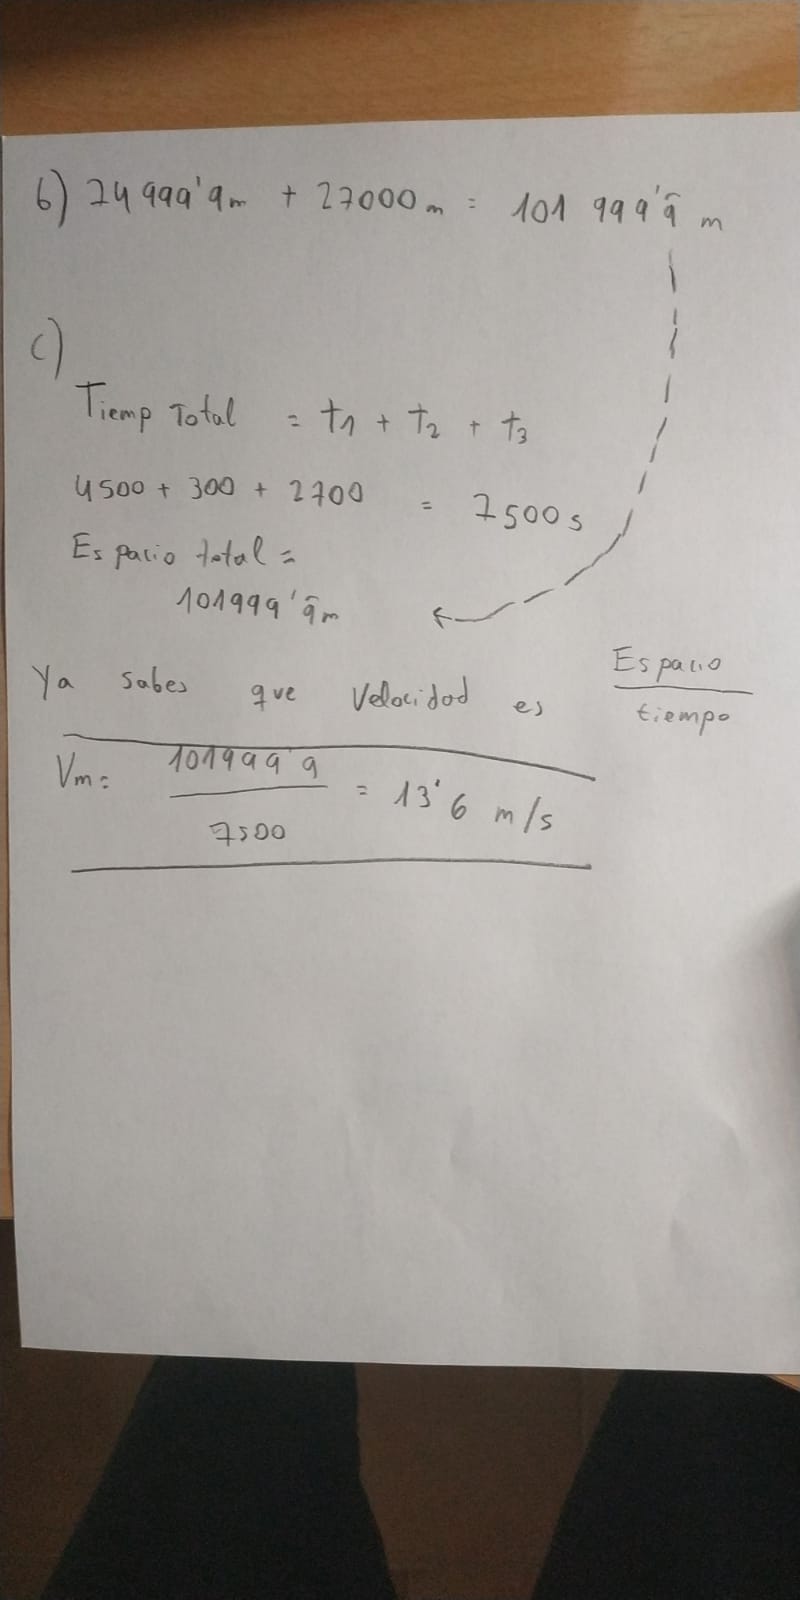 b) 74 999'9m + 27000m = 101 999'9̂ m
c)
Tiemp Total = t1 + t2 + t3
4500 + 300 + 2700 = 7500s
Espacio total =
101999'9̂m
Ya sabes que Velocidad es Espacio/tiempo
Vm= 101999'9/7500 = 13'6 m/s